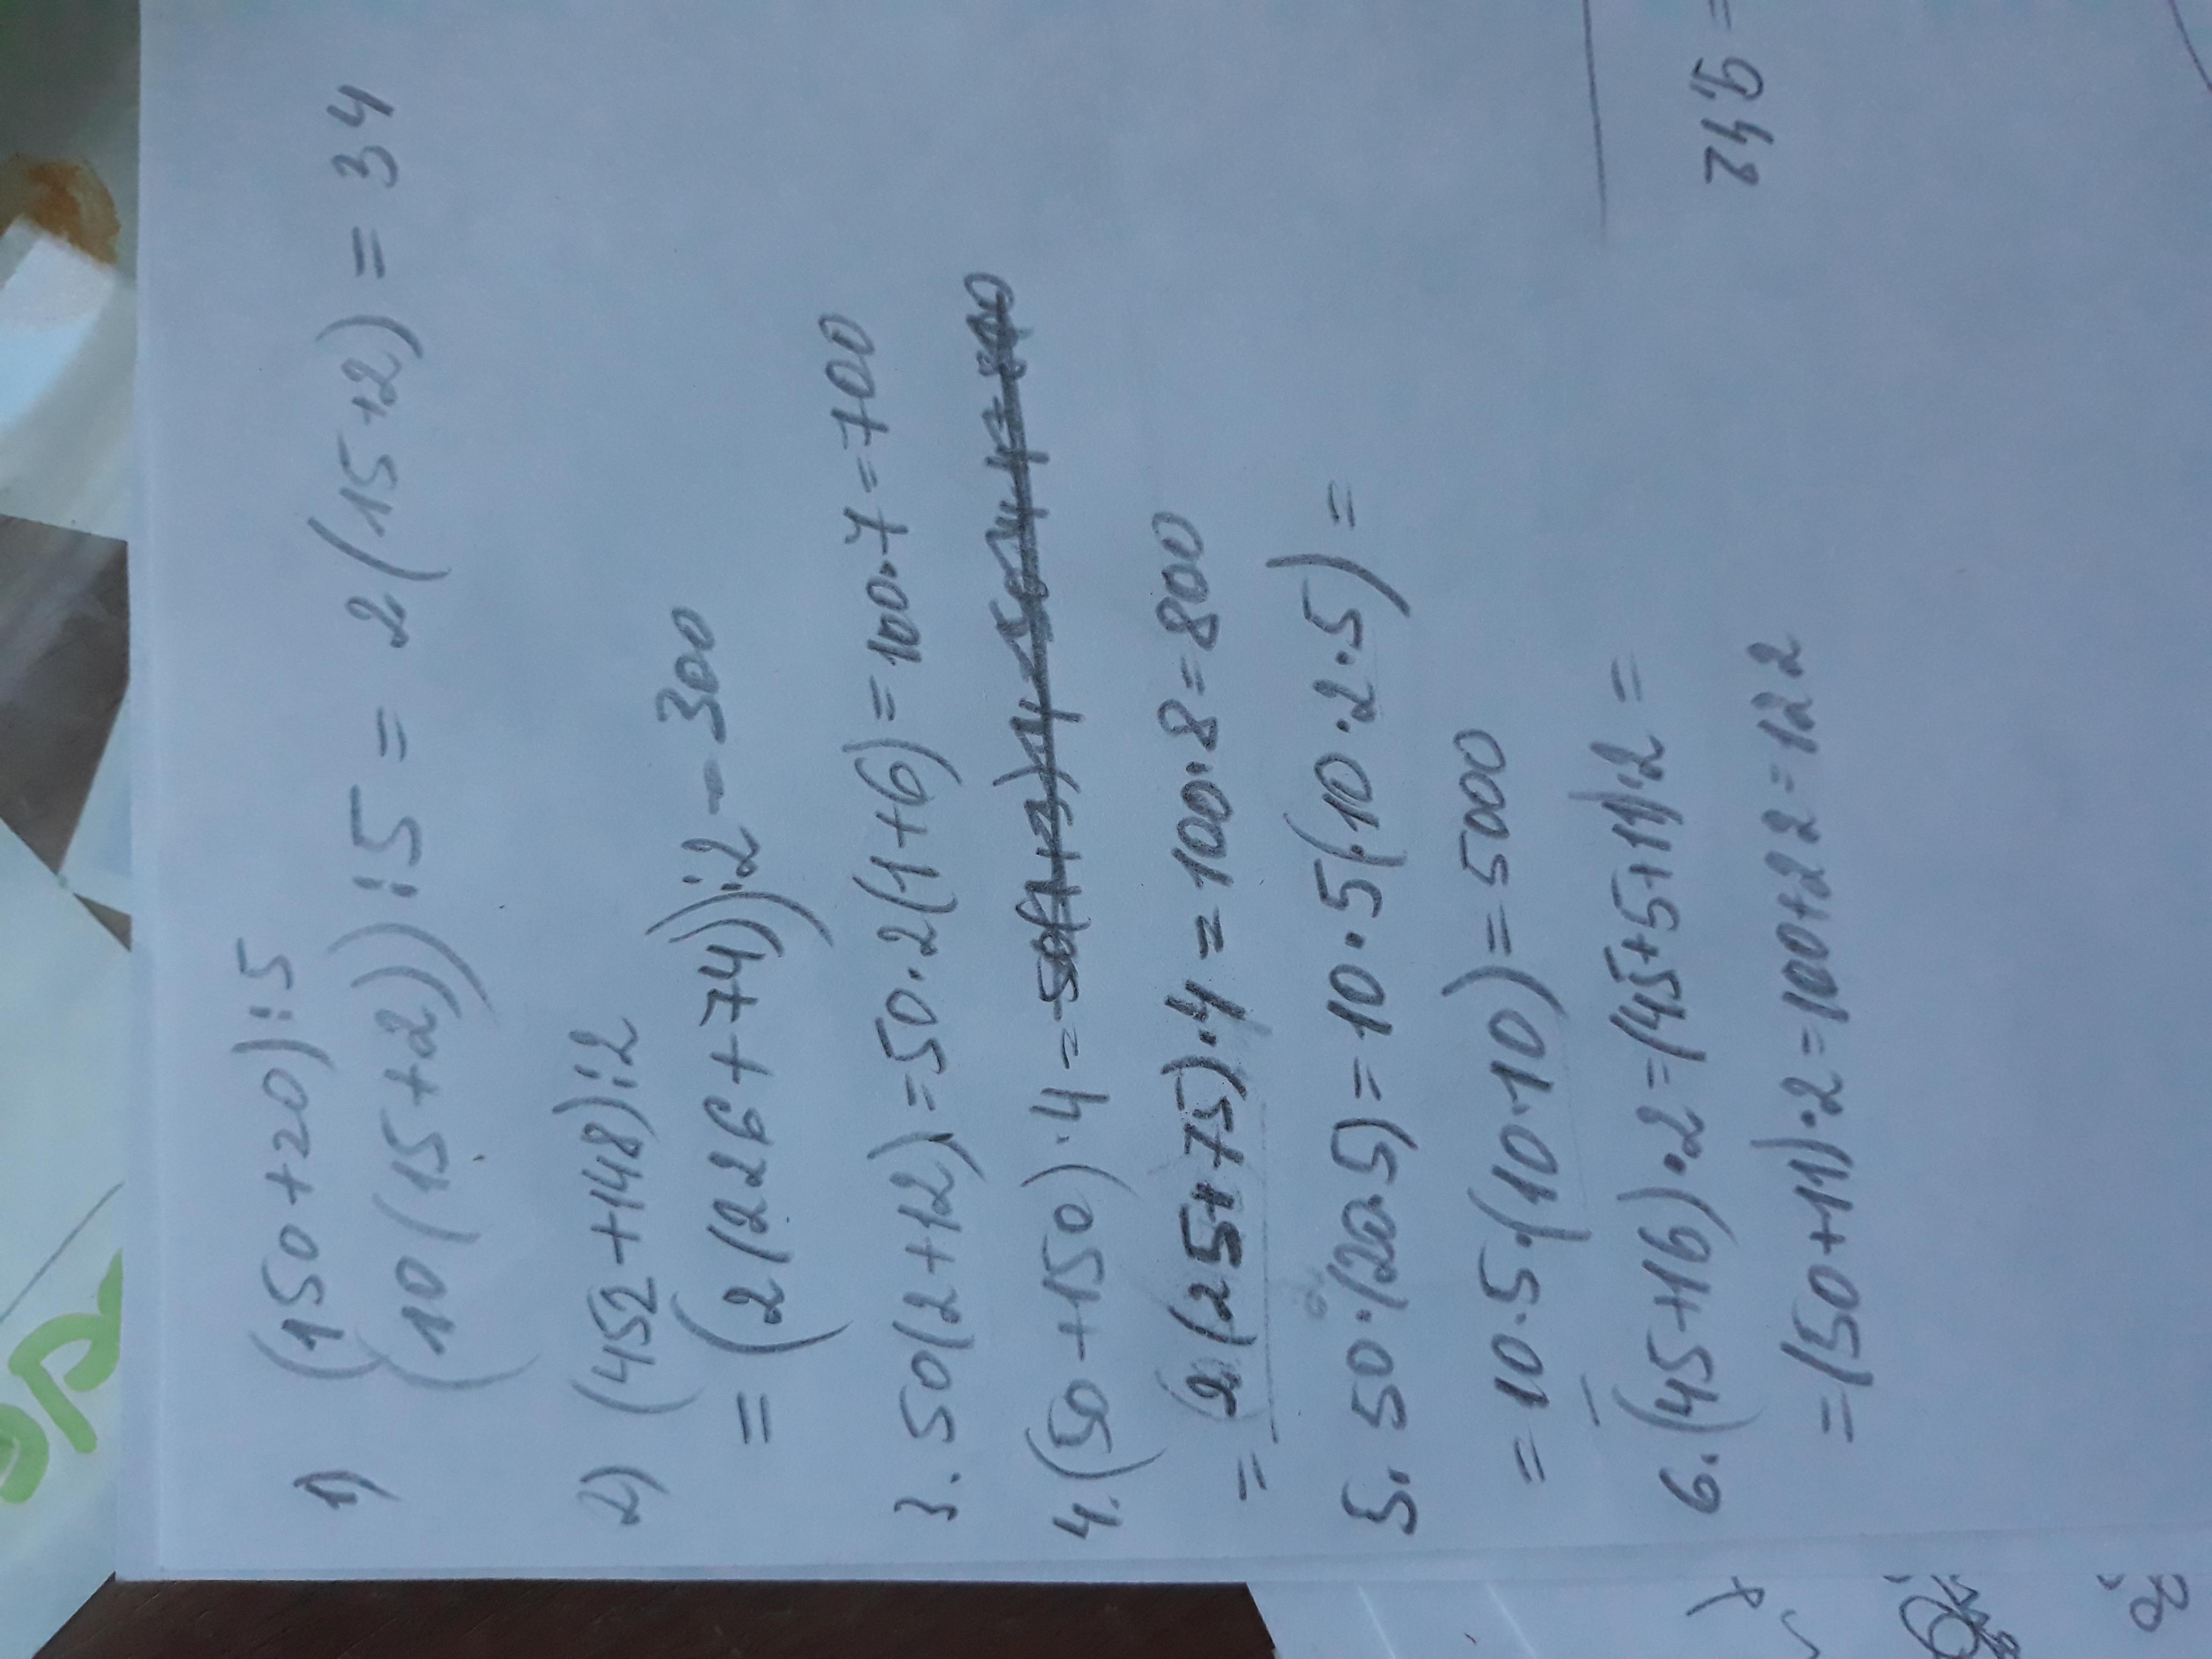 1) (150+20):5
(10(15+2)):5 = 2(15+2) = 34
2) (452+148):2
= (2(226+74)):2 - 300
3. 50(2+12)=50·2(1+6)=100·7=700
4. (50+150)·4=
= 2(25+75)·4=100·8=800
5. 50·(20·5)=10·5(·10·2·5)=
=10·5·(10·10)=5000
6. (45+16)·2=(45+5+11)·2=
=(50+11)·2=100+22=122